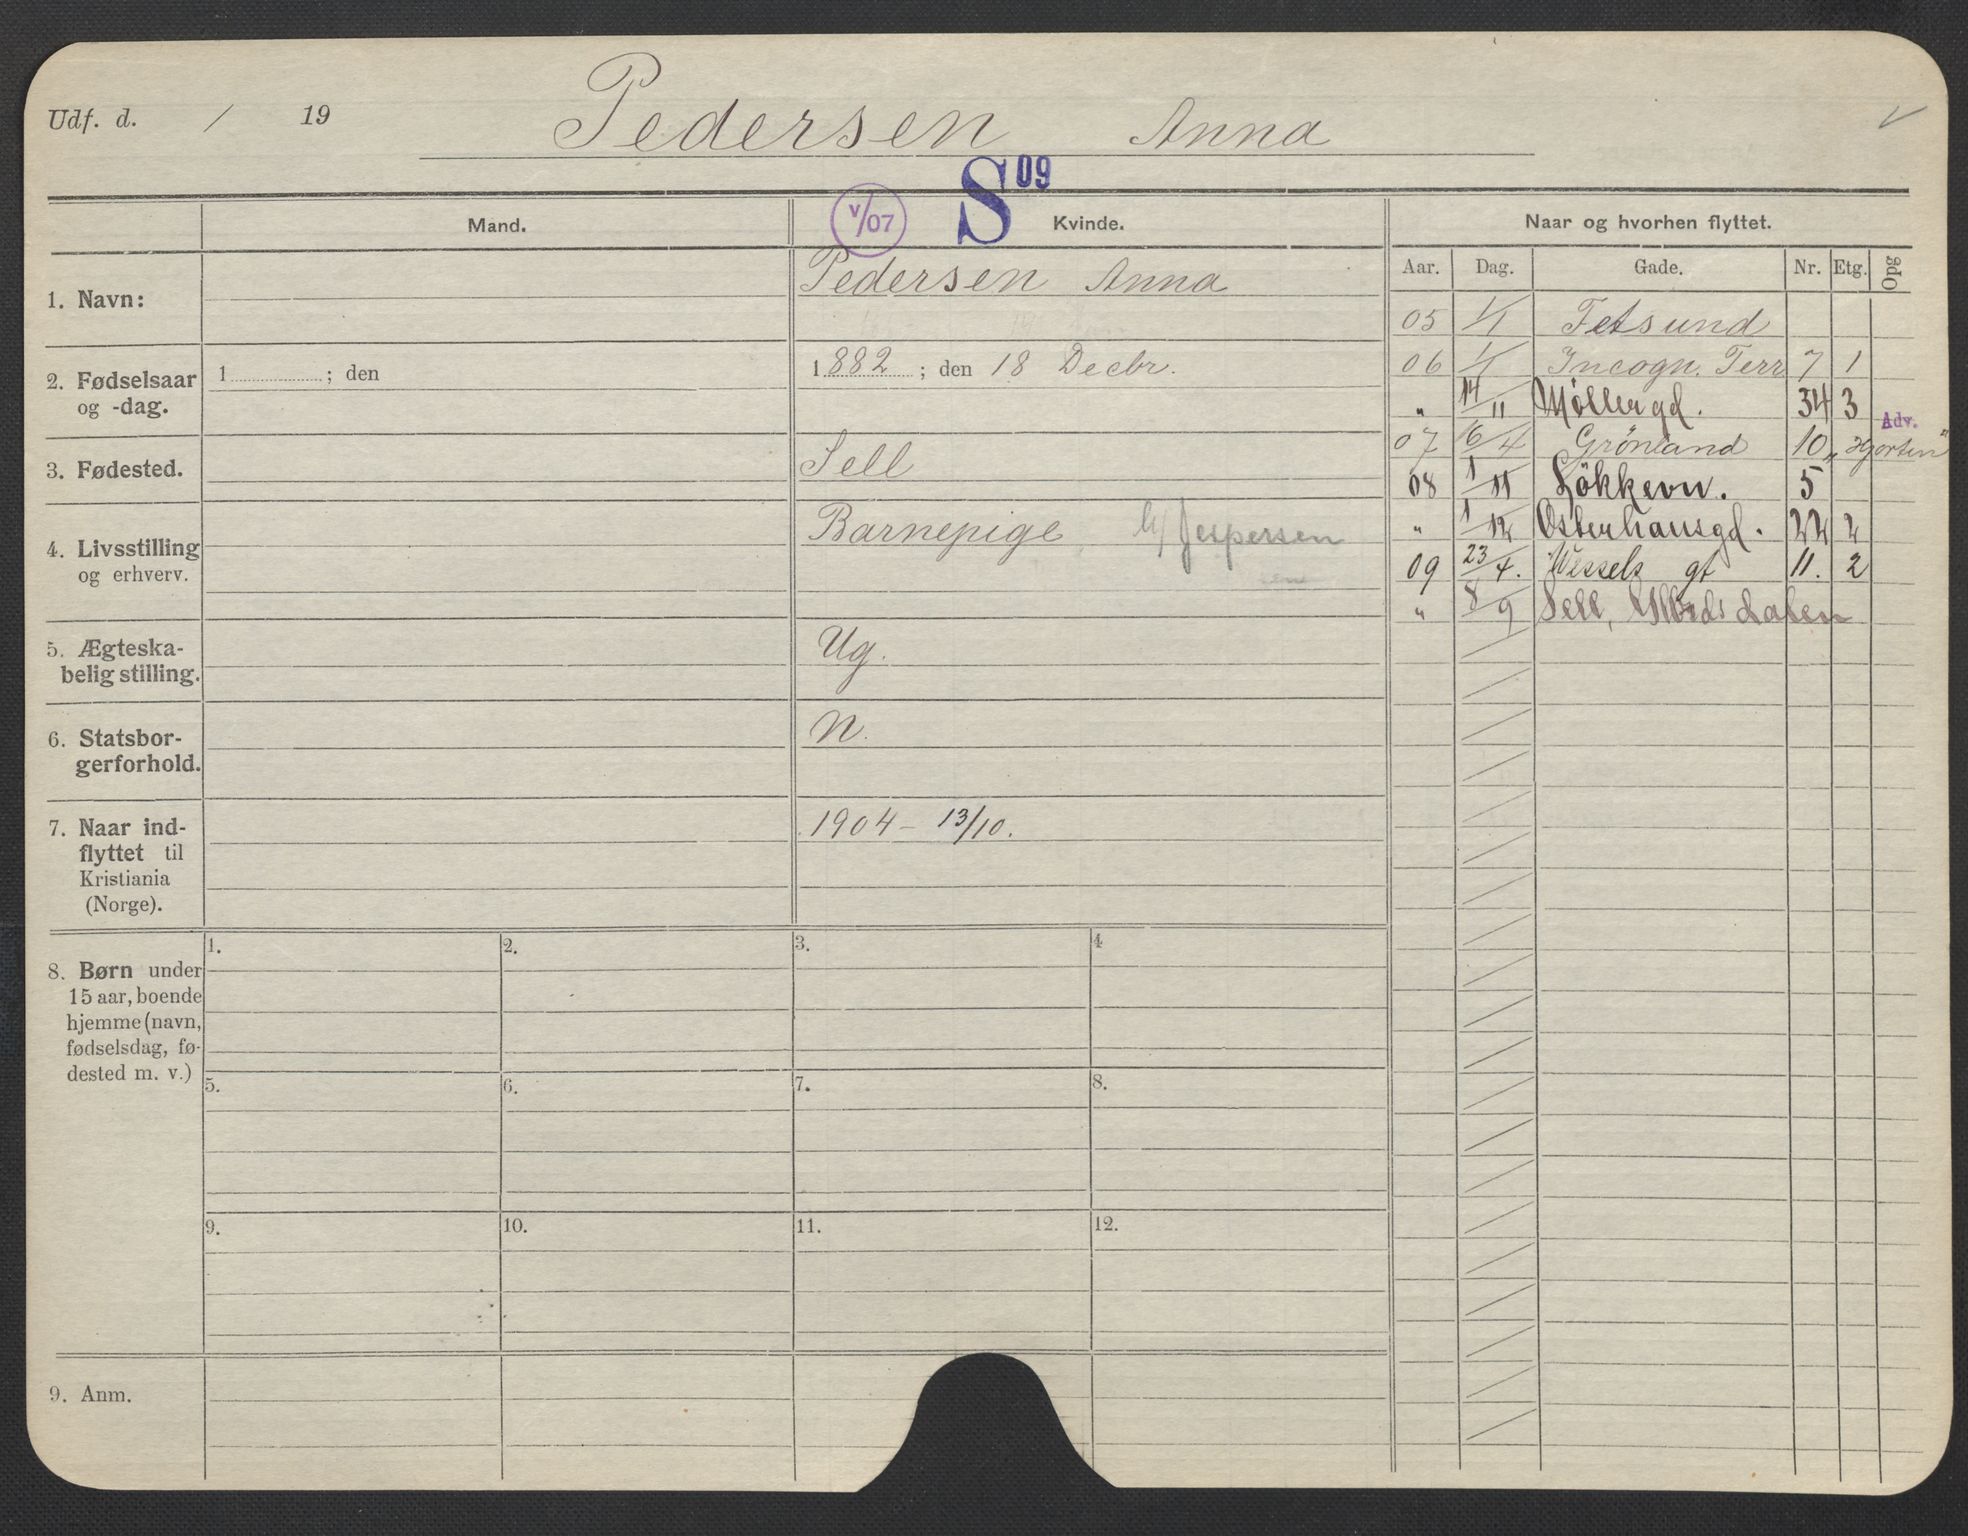 Udf. d. / 19 Pedersen Anna
S 09
V/07
Mand. Kvinde. Naar og hvorhen flyttet.
Aar. Dag. Gade. Nr. Etg. Opg
1. Navn: Pedersen Anna
2. Fødselsaar og -dag. 1 ; den
1882 ; den 18 Decbr.
3. Fødested. Sell
4. Livsstilling og erhverv. Barnepige h/ Jespersen
5. Ægteska-
belig stilling. Ug.
6. Statsbor-
gerforhold. N.
7. Naar ind-
flyttet til
Kristiania
(Norge).
1904 - 13/10.
05 1/1 Fetsund
06 1/1 Incogn. Terr 7 1
" 14/11 Møllergd. 34 3
Adv.
07 16/4 Grönland 10 "Hjorten"
08 1/11 Lökkevn. 5
" 1/12 Osterhausgd. 22 2
09 23/4. Wessels gt 11. 2
" 8/9 Sell,
8. Børn under
15 aar, boende
hjemme (navn,
fødselsdag, fø-
dested m. v.)
1. 2. 3. 4
5. 6. 7. 8.
9. 10. 11. 12.
9. Anm.